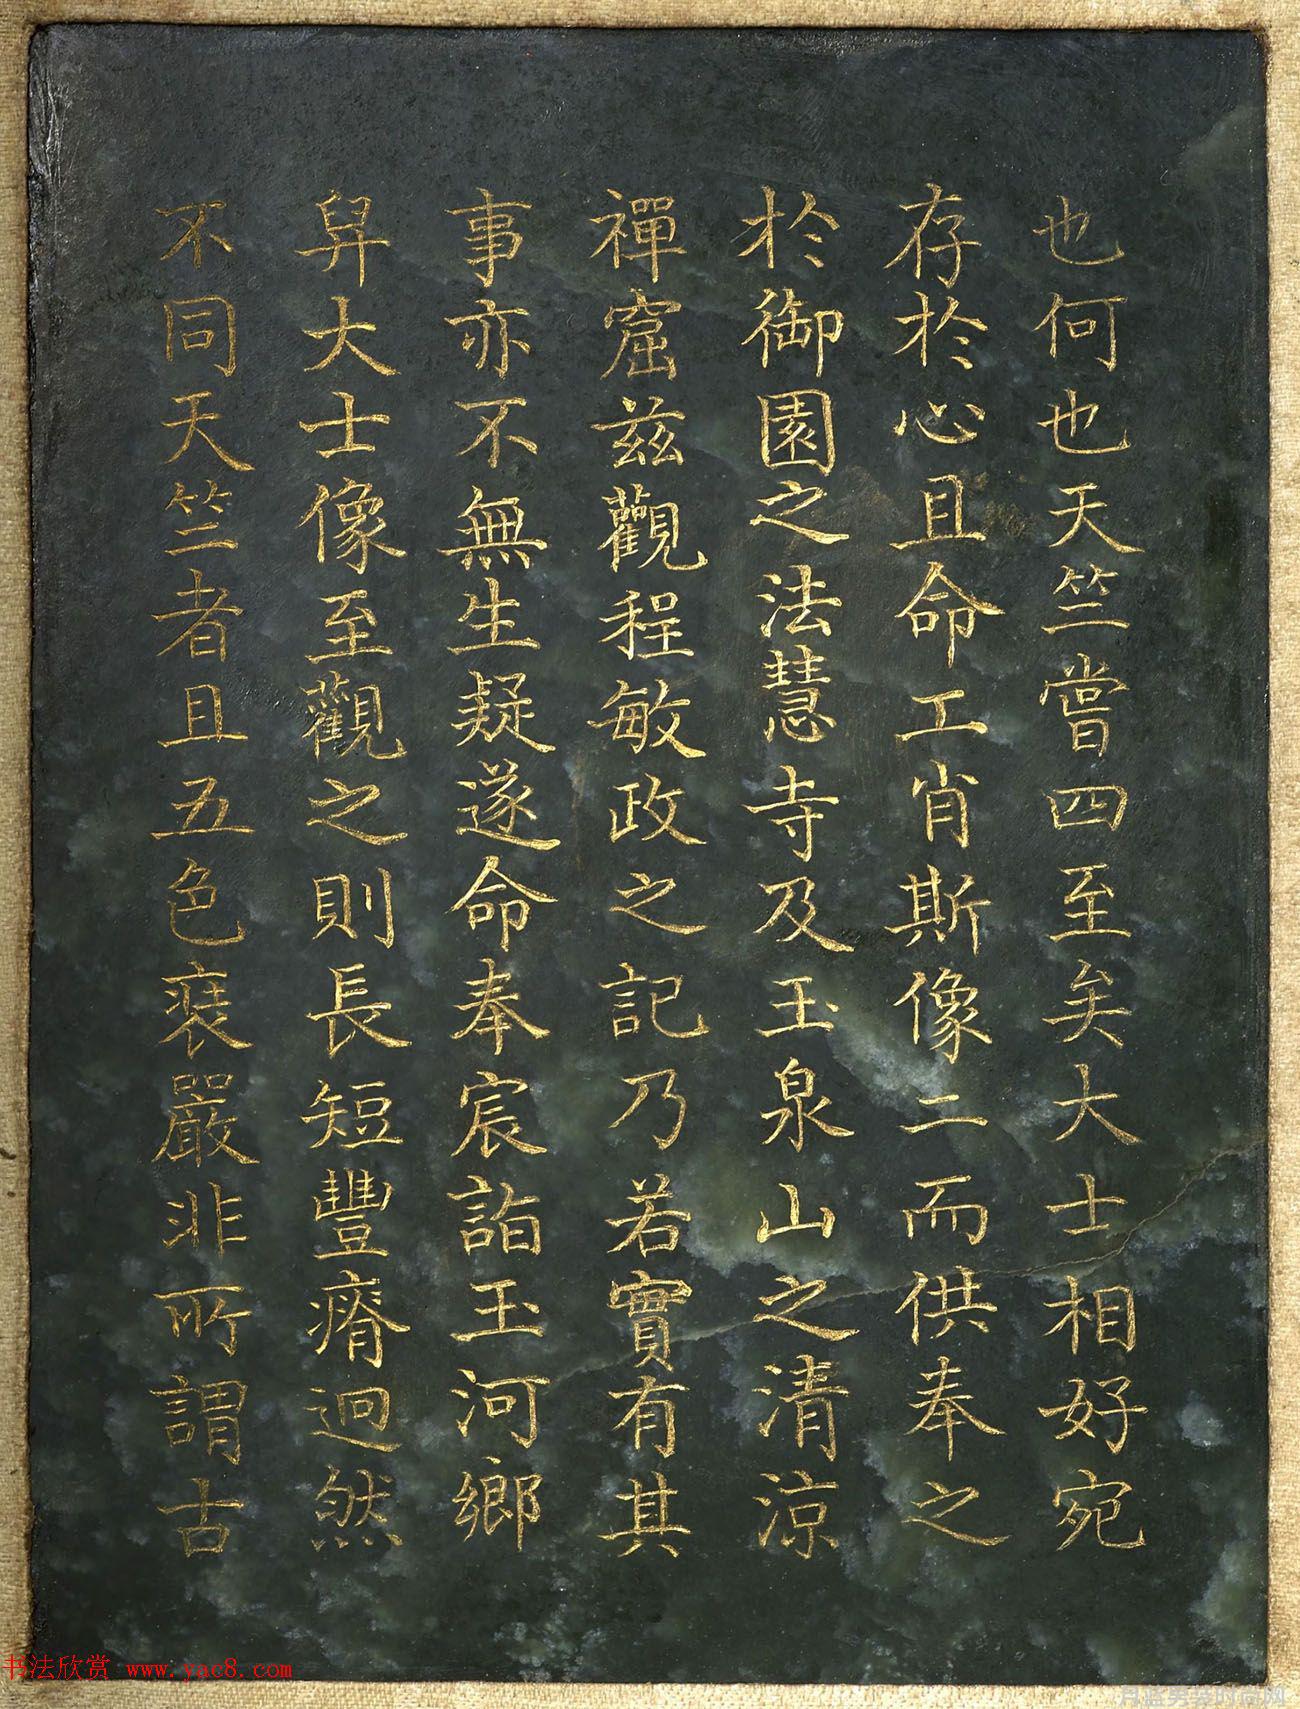 也何也天竺嘗四至矣大士相好宛
存於心且命工肖斯像二而供奉之
於御園之法慧寺及玉泉山之清涼
禪窟兹觀程敏政之記乃若實有其
事亦不無生疑遂命奉宸詣玉河鄉
舁大士像至觀之則長短豐瘠迥然
不同天竺者且五色裝嚴非所謂古
书法欣赏 www.yac8.com